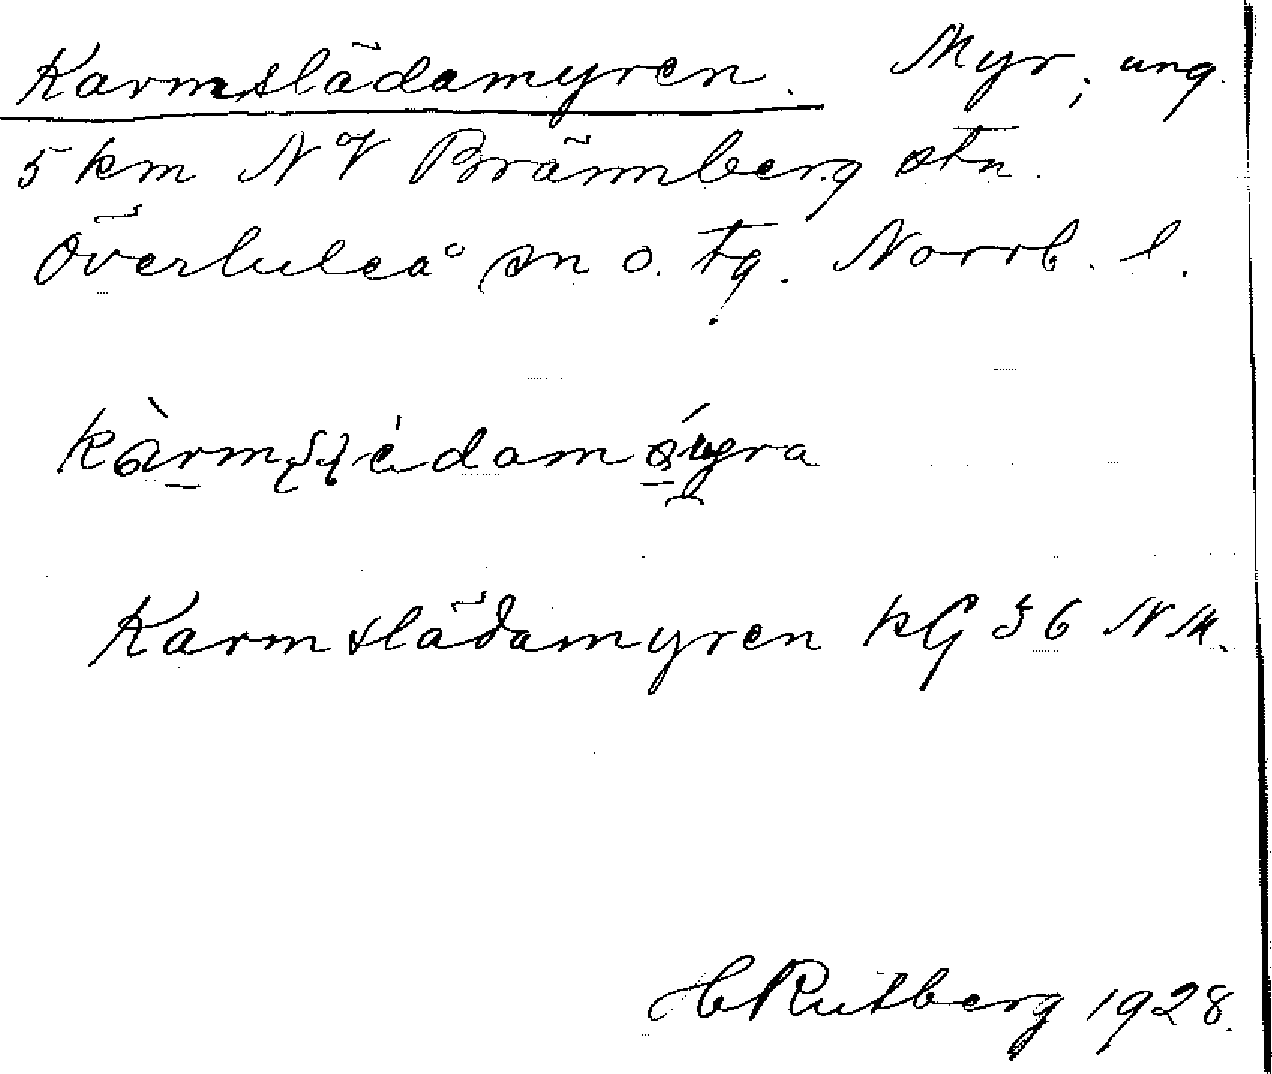 Karmslädamyren. Myr, ung.
5 km NV Brännberg stn.
Överluleå sn o. tg. Norrb. l.
Karmslädamyren kG 36 NM.
H Rutberg 1928.